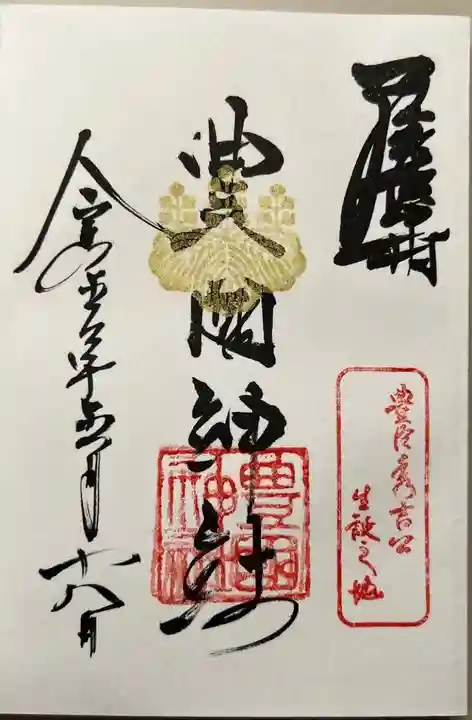 尾張中村
豊國神社
豊國神社
豊臣秀吉公
生誕之地
令和 年 月十八日